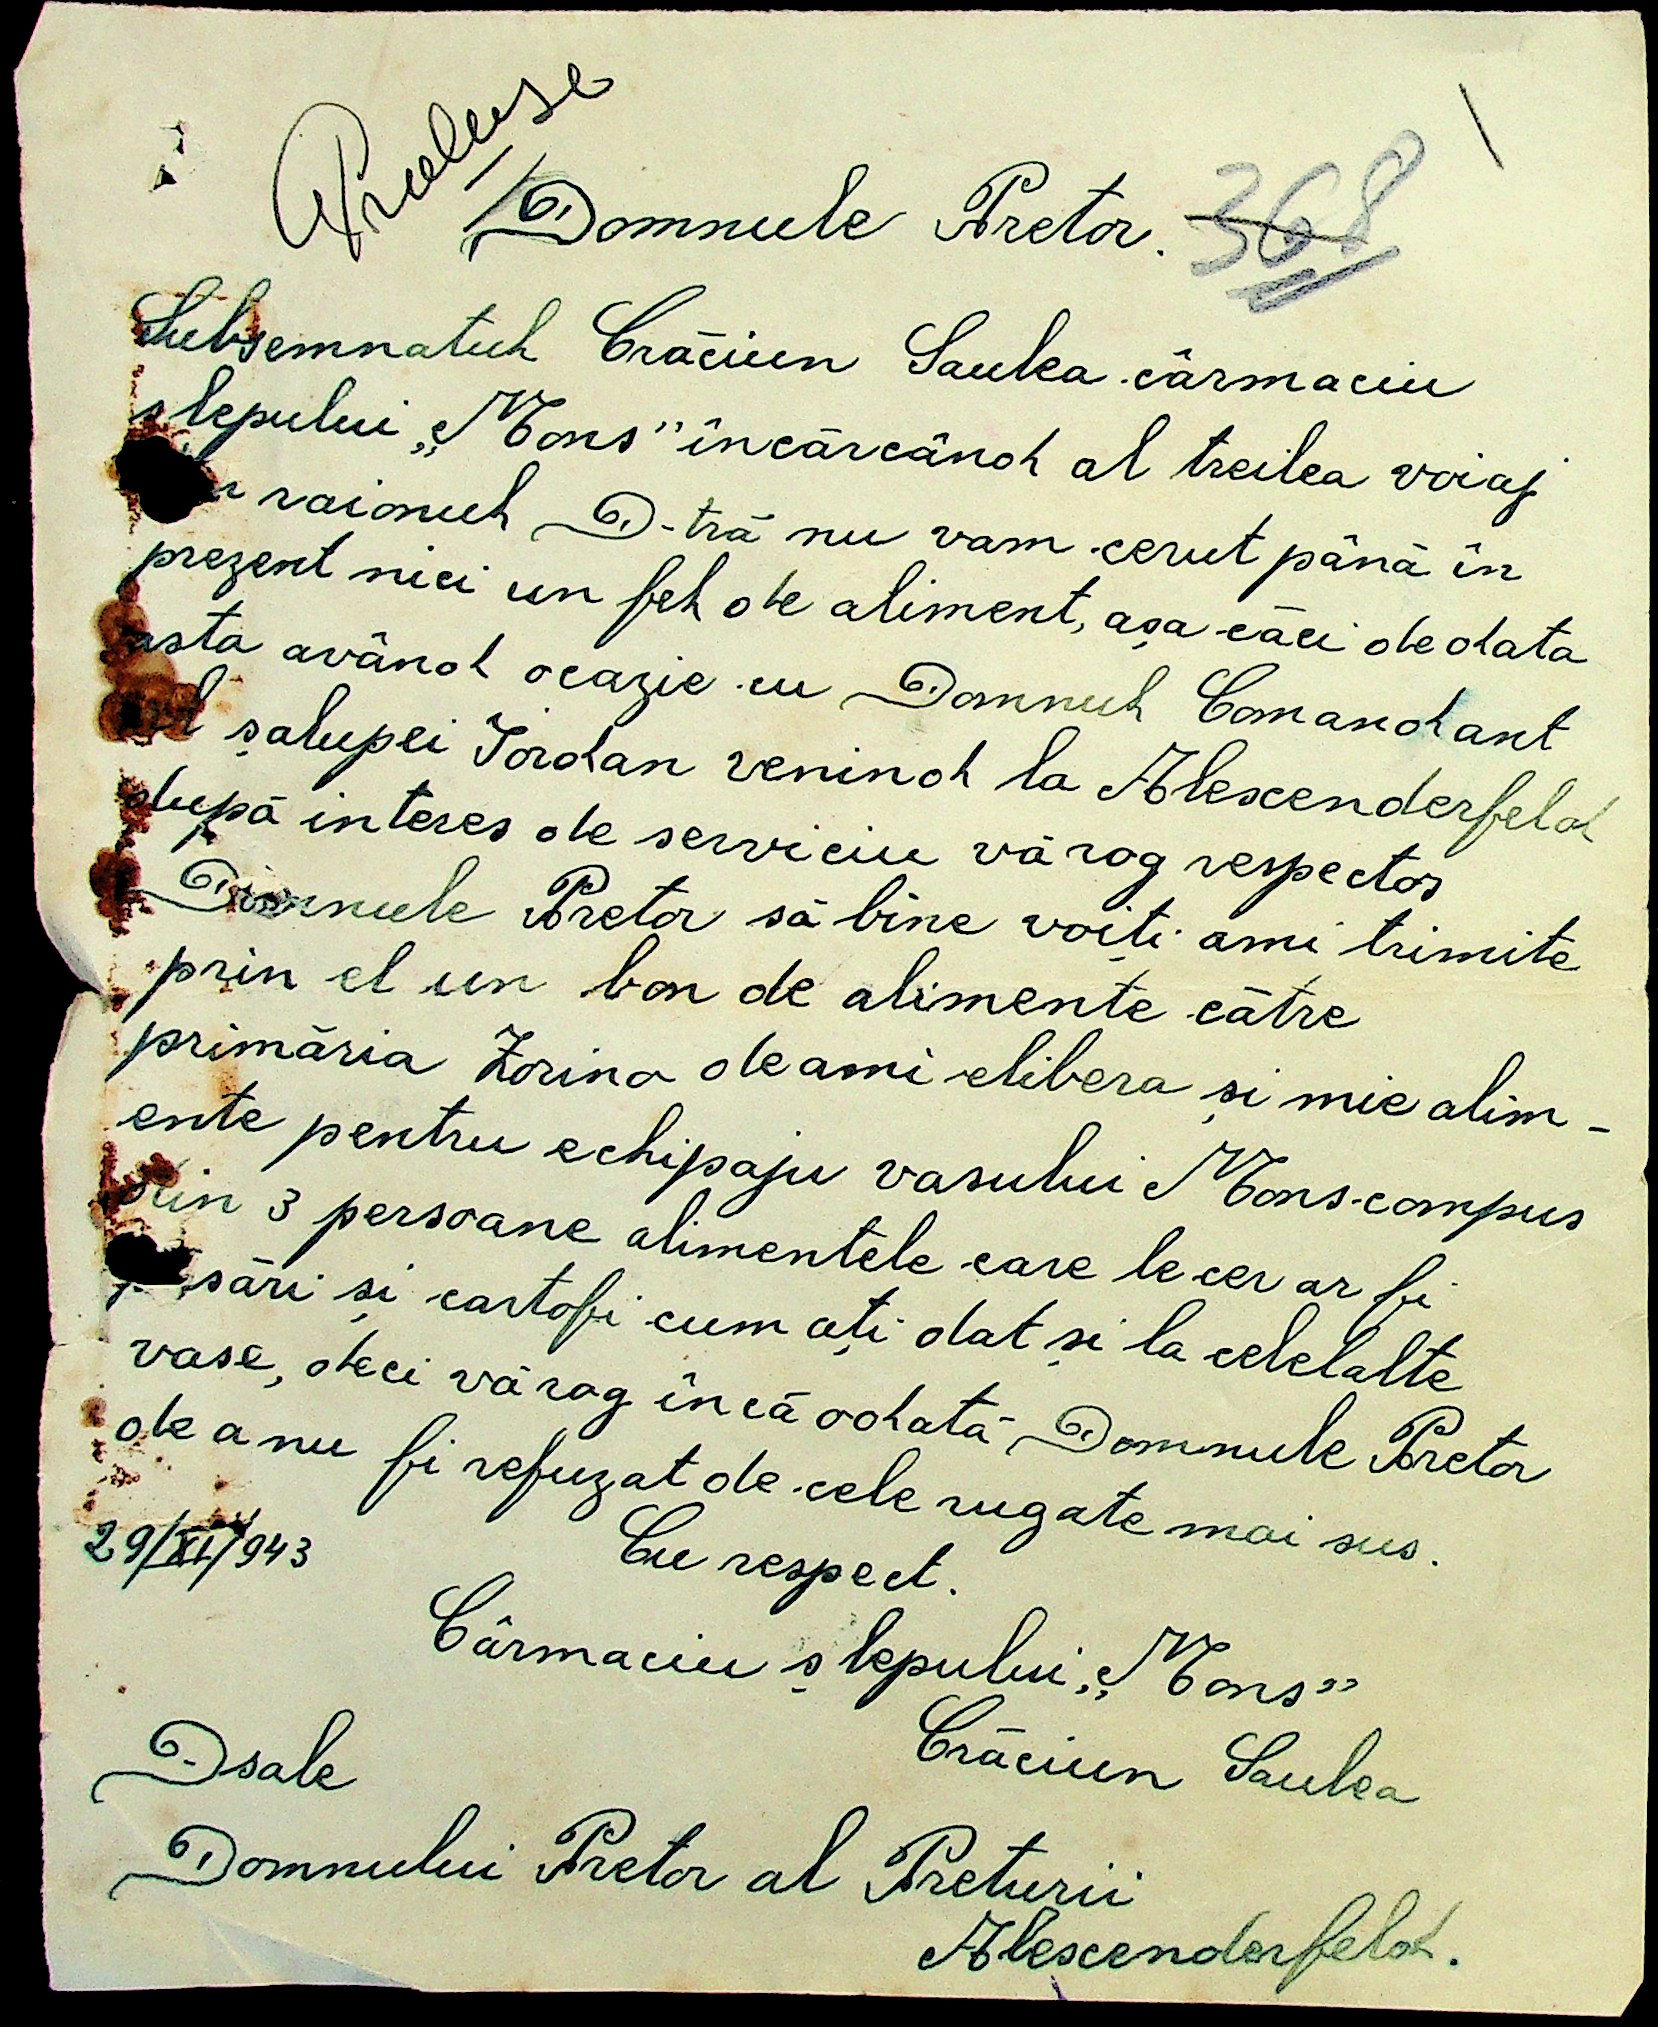 368
Domnule Pretor.
Subsemnatul Crăciun Saulea cârmaciu
șlepului „Mons" încărcând al treilea voiaj
raionul D-tră nu vam cerut până în
prezent nici un fel de aliment, așa căci deodata
asta având ocazie cu Domnul Comandant
al șalupei Iordan venind la Alexenderfeld
după interes de serviciu vă rog respectos
Domnule Pretor să bine voiți ami trimite
prin el un bon de alimente către
primăria Zorina deami elibera și mie alim-
ente pentru echipaju vasului Mons compus
din 3 persoane alimentele care le cer ar fi
păsări și cartofi cum ați dat și la celelalte
vase, deci vă rog încă odată Domnule Pretor
de a nu fi refuzat de cele rugate mai sus.
29/XI/943 Cu respect.
Cârmaciu șlepului „Mons"
Crăciun Saulea
Dsale
Domnului Pretor al Preturii
Alexenderfeld.